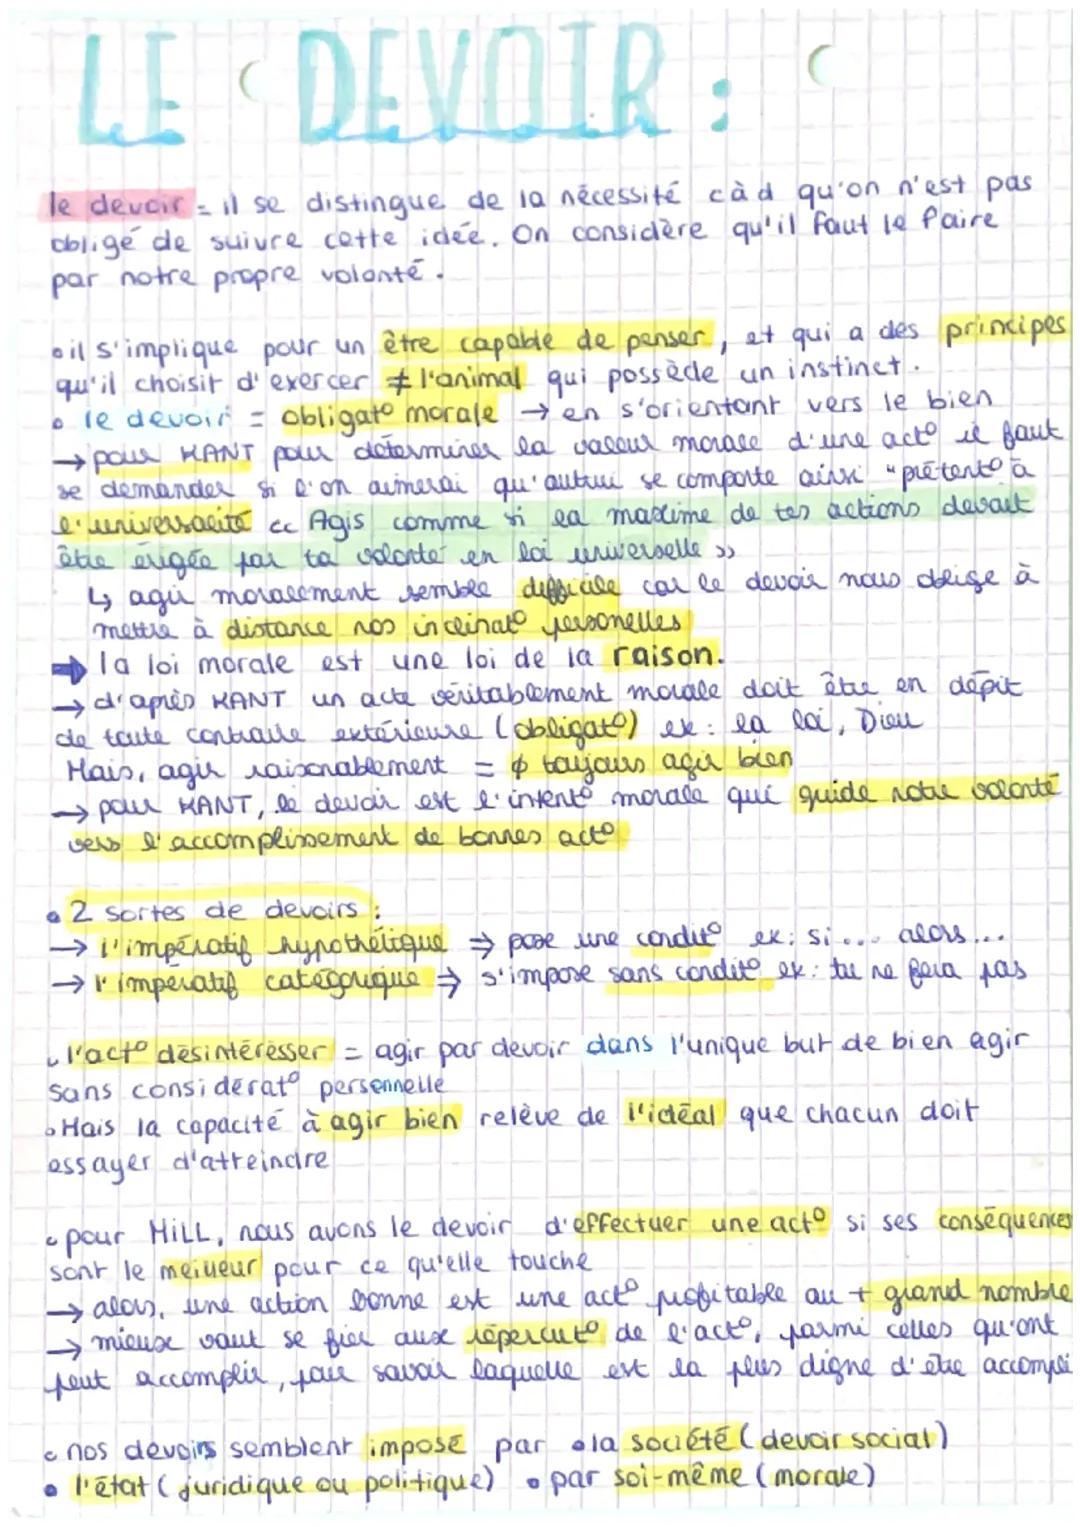 LE DEVOIR :
le devoir = il se distingue de la nécessité càd qu'on n'est pas
obligé de suivre cette idée. On considère qu'il faut le faire
par notre propre volonté.
• il s'implique pour un être capable de penser, et qui a des principes
qu'il choisit d'exercer ≠ l'animal qui possède un instinct.
• le devoir = obligat° morale → en s'orientant vers le bien
→ pour KANT pour déterminer la valeur morale d'une act° il faut
se demander si l'on aimerai qu'autrui se comporte ainsi "prétent° à
l'universalité « Agis comme si la maxime de tes actions devait
être érigée par ta volonté en loi universelle »
↳ agir moralement semble difficile car le devoir nous oblige à
mettre à distance nos inclinat° personelles
➡ la loi morale est une loi de la raison.
→ d'après KANT un acte véritablement morale doit être en dépit
de toute contraire extérieure (obligat°) ex : la loi, Dieu
Mais, agir raisonablement = ≠ toujours agir bien
→ pour KANT, le devoir est l'intent° morale qui guide notre volonté
vers l'accomplissement de bonnes act°
• 2 sortes de devoirs :
→ l'impératif hypothétique ⇒ pose une condit° ex : si... alors...
→ l'impératif catégorique ⇒ s'impose sans condit° ex : tu ne fera pas
• l'act° désintéresser = agir par devoir dans l'unique but de bien agir
sans considérat° personnelle
• Mais la capacité à agir bien relève de l'idéal que chacun doit
essayer d'atteindre
• pour MiLL, nous avons le devoir d'effectuer une act° si ses conséquences
sont le meilleur pour ce qu'elle touche
→ alors, une action bonne est une act° profitable au + grand nombre
→ mieux vaut se fier aux répercut° de l'act°, parmi celles qu'ont
peut accomplir, pour savoir laquelle est la plus digne d'être accompli
• nos devoirs semblent imposé par • la société (devoir social)
• l'état (juridique ou politique) • par soi-même (morale)